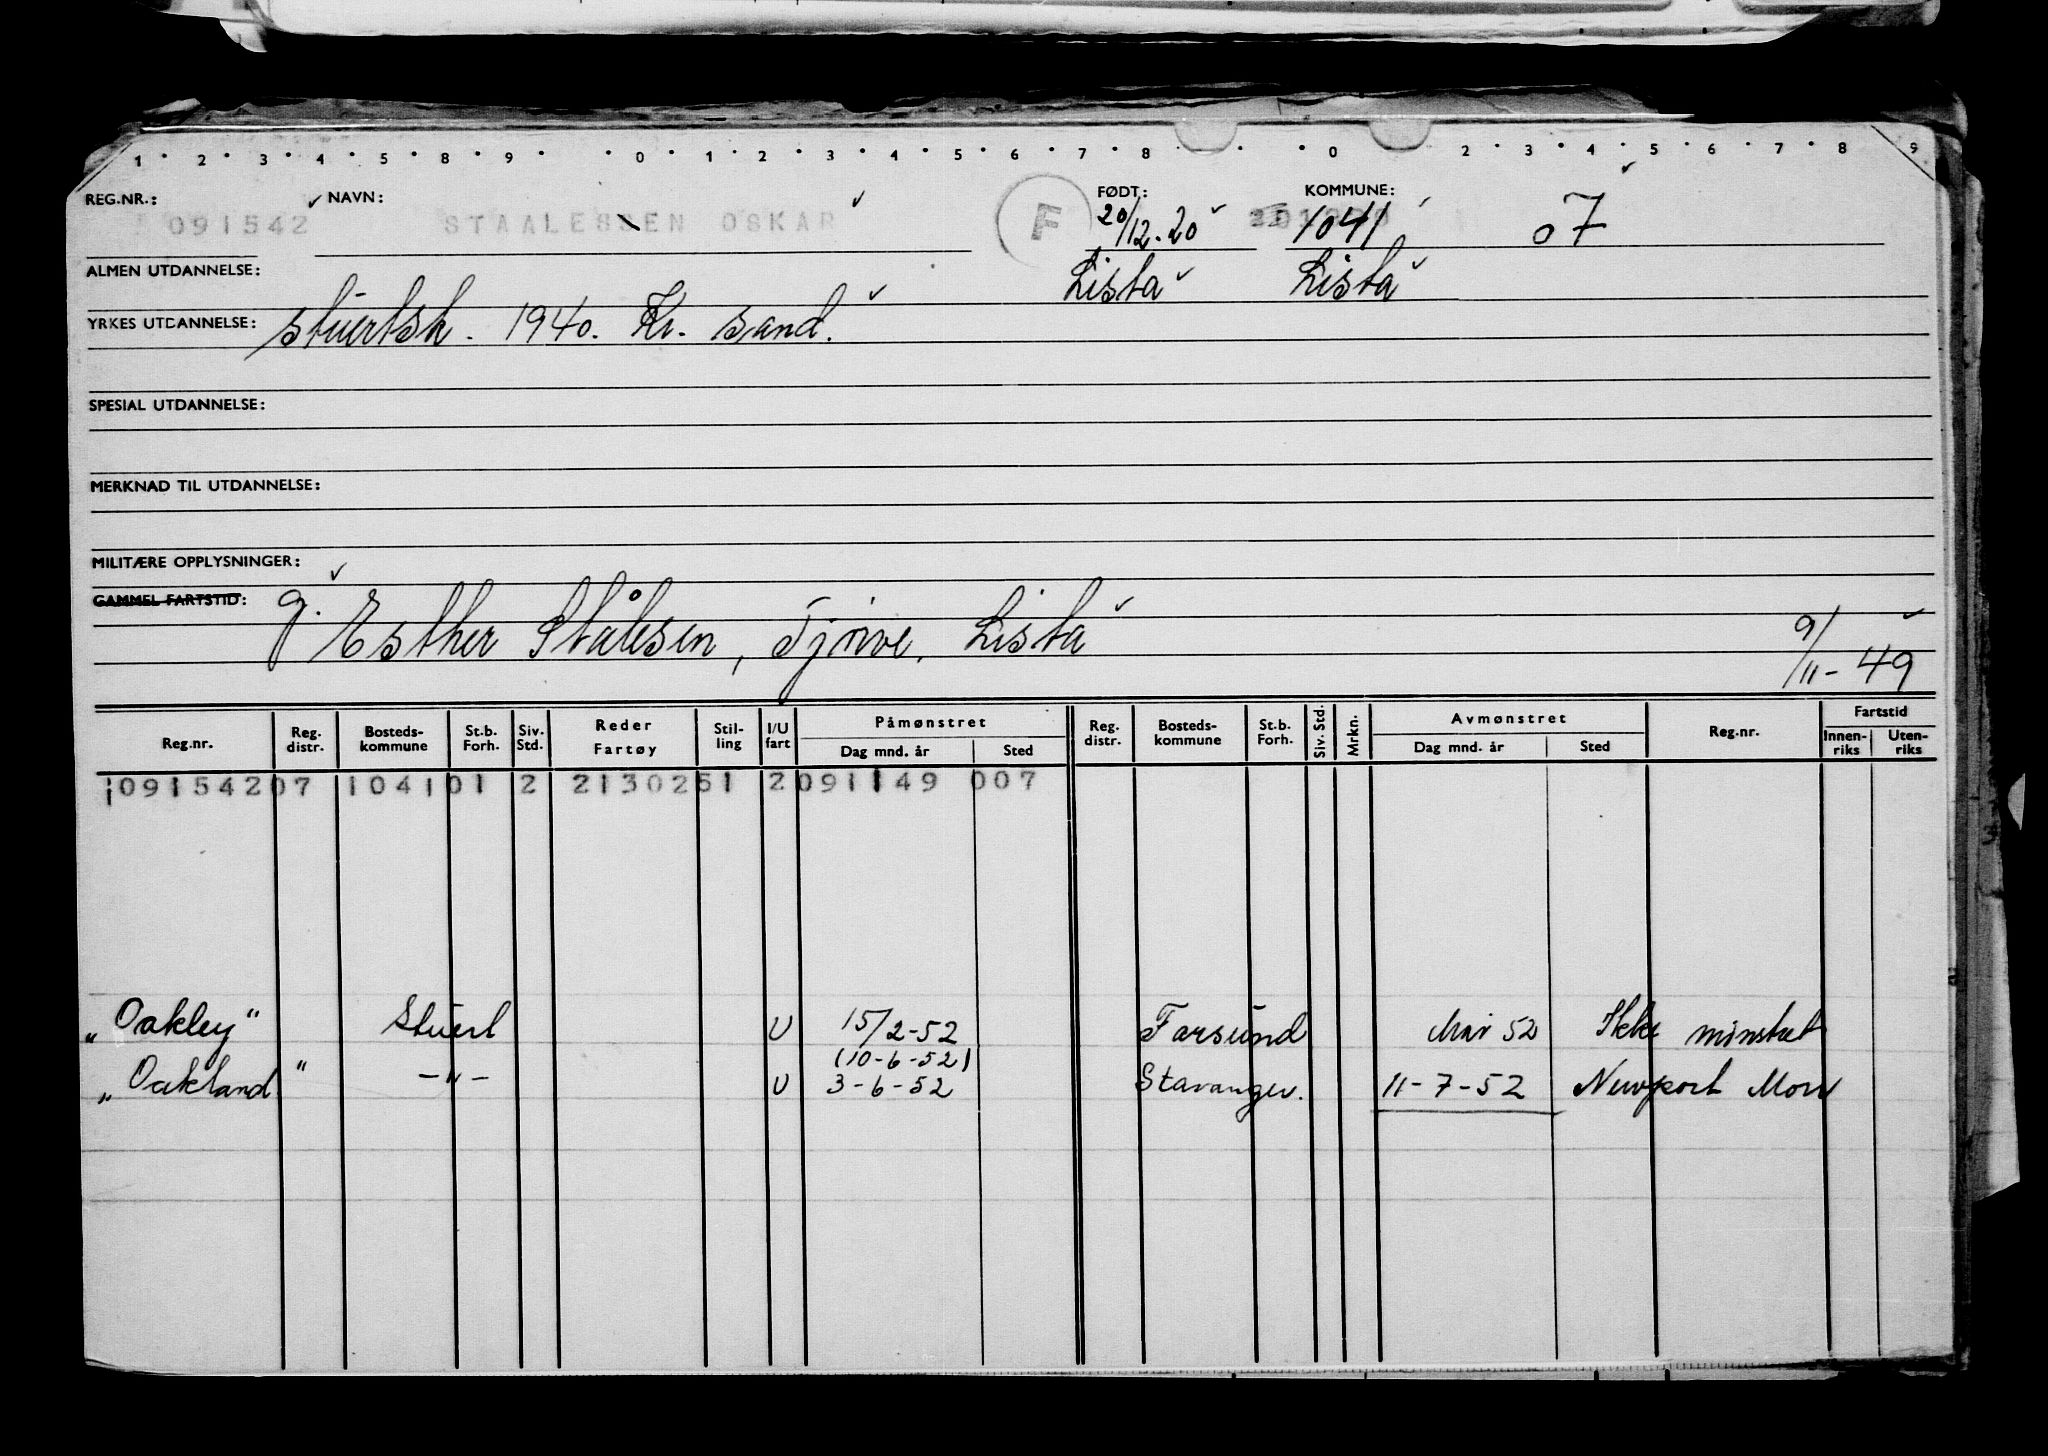 1 2 3 4 5 8 9 0 1 2 3 4 5 6 7 8 0 2 3 4 5 6 7 8 9
REG.NR.: NAVN: FØDT: KOMMUNE:
091542 STAALESSEN OSKAR F 20/12.20 1041 07
ALMEN UTDANNELSE: Lista Lista
YRKES UTDANNELSE: stuertsk. 1940. Kr. sand.
SPESIAL UTDANNELSE:
MERKNAD TIL UTDANNELSE:
MILITÆRE OPPLYSNINGER:
GAMMEL FARTSTID: g. Esther Stålesen, Tjörve, Lista 9/11-49
Reg.nr. Reg. distr. Bosteds-kommune St.b. Forh. Siv. Std. Reder Fartøy Stil-ling I/U fart Påmønstret Dag mnd. år Sted Reg. distr. Bosteds-kommune St.b. Forh. Siv. Std. Mrkn. Avmønstret Dag mnd. år Sted Reg.nr. Fartstid Innen-riks Uten-riks
09154207 104101 2 2130251 2091149 007
"Oakley" Stuert U 15/2-52 Farsund Mai 52 Ikke mönstret
(10-6-52)
"Oakland" -"- U 3-6-52 Stavanger. 11-7-52 Newport Mon